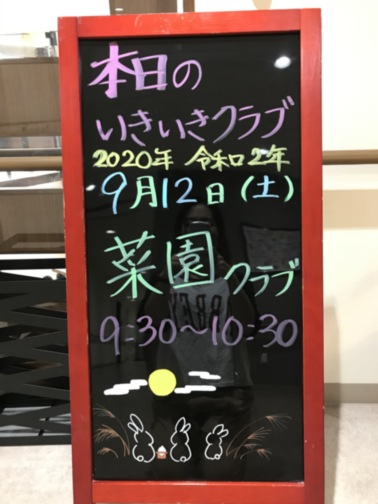 本日の
いきいきクラブ
2020年 令和2年
9月12日(土)
菜園クラブ
9:30～10:30